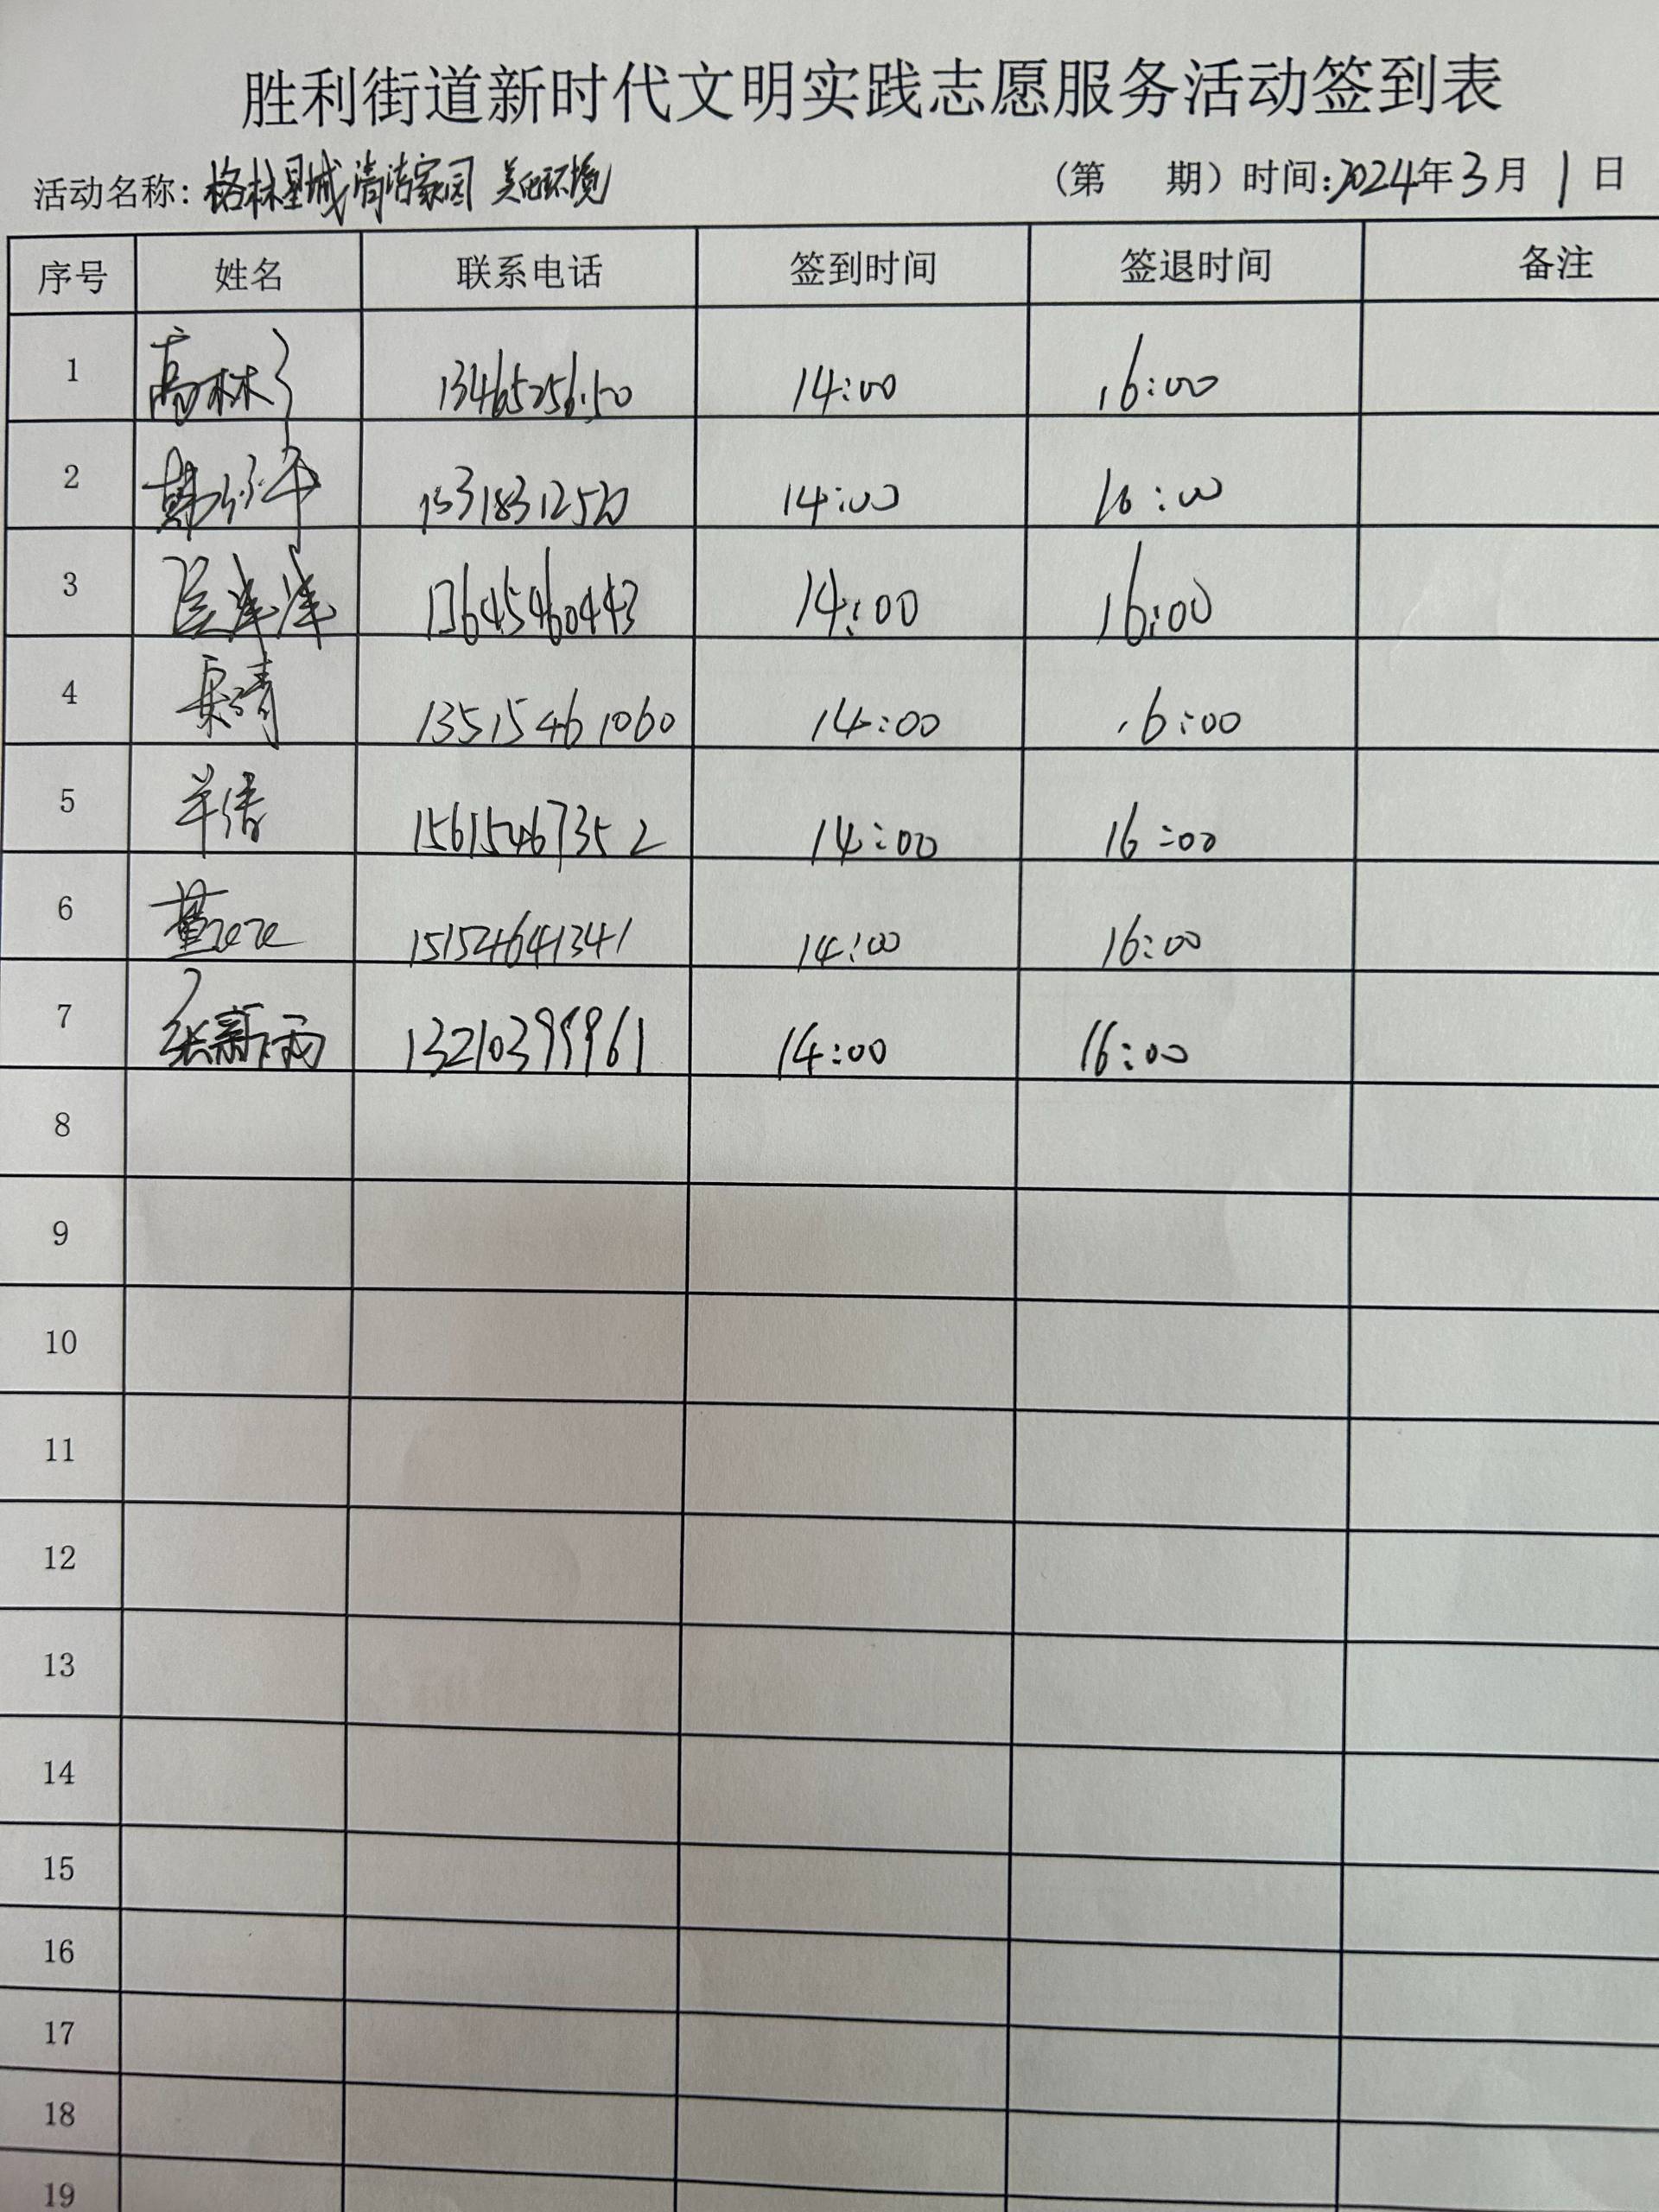 胜利街道新时代文明实践志愿服务活动签到表
活动名称：格林星城清洁家园 美化环境 （第 期）时间：2024年3月1日
序号 姓名 联系电话 签到时间 签退时间 备注
1 高林 14:00 16:00
2 14:00 16:00
3 14:00 16:00
4 13515461060 14:00 16:00
5 15615467352 14:00 16:00
6 董 15154641341 14:00 16:00
7 张新雨 13210399961 14:00 16:00
8
9
10
11
12
13
14
15
16
17
18
19